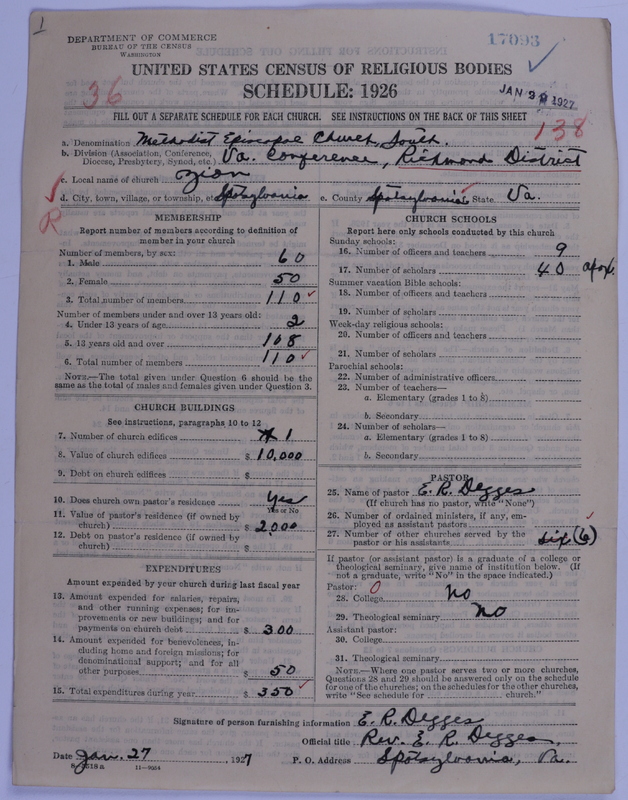 1
DEPARTMENT OF COMMERCE
BUREAU OF THE CENSUS
WASHINGTON
17093
UNITED STATES CENSUS OF RELIGIOUS BODIES
SCHEDULE: 1926
36
JAN 1927
FILL OUT A SEPARATE SCHEDULE FOR EACH CHURCH. SEE INSTRUCTIONS ON THE BACK OF THIS SHEET
138
a. Denomination Methodist Episcopal Church, South.
b. Division (Association, Conference, Diocese, Presbytery, Synod, etc.) Va. Conference, Richmond District
c. Local name of church Zion
d. City, town, village, or township, etc. Spotsylvania e. County Spotsylvania State Va.
R
MEMBERSHIP
Report number of members according to definition of
member in your church
Number of members, by sex:
1. Male 60
2. Female 50
3. Total number of members 110
Number of members under and over 13 years old:
4. Under 13 years of age 2
5. 13 years old and over 108
6. Total number of members 110
NOTE.—The total given under Question 6 should be the
same as the total of males and females given under Question 3.
CHURCH BUILDINGS
See instructions, paragraphs 10 to 12
7. Number of church edifices 1
8. Value of church edifices $ 10,000
9. Debt on church edifices $
10. Does church own pastor's residence Yes
Yes or No
11. Value of pastor's residence (if owned by
church) $ 2,000
12. Debt on pastor's residence (if owned by
church) $
EXPENDITURES
Amount expended by your church during last fiscal year
13. Amount expended for salaries, repairs,
and other running expenses; for im-
provements or new buildings; and for
payments on church debt $ 300
14. Amount expended for benevolences, in-
cluding home and foreign missions; for
denominational support; and for all
other purposes $ 50
15. Total expenditures during year $ 350
CHURCH SCHOOLS
Report here only schools conducted by this church
Sunday schools:
16. Number of officers and teachers 9
17. Number of scholars 40 apox.
Summer vacation Bible schools:
18. Number of officers and teachers
19. Number of scholars
Week-day religious schools:
20. Number of officers and teachers
21. Number of scholars
Parochial schools:
22. Number of administrative officers
23. Number of teachers—
a. Elementary (grades 1 to 8)
b. Secondary
24. Number of scholars—
a. Elementary (grades 1 to 8)
b. Secondary
PASTOR
25. Name of pastor E. R. Degges
(If church has no pastor, write "None")
26. Number of ordained ministers, if any, em-
ployed as assistant pastors
27. Number of other churches served by the
pastor or his assistants six (6)
If pastor (or assistant pastor) is a graduate of a college or
theological seminary, give name of institution below. (If
not a graduate, write "No" in the space indicated.)
Pastor: 0
28. College No
29. Theological seminary No
Assistant pastor:
30. College
31. Theological seminary
NOTE.—Where one pastor serves two or more churches,
Questions 28 and 29 should be answered only on the schedule
for one of the churches; on the schedules for the other churches,
write "See schedule for church."
Signature of person furnishing information E. R. Degges
Official title Rev. E. R. Degges
Date Jan. 27, 1927 P. O. Address Spotsylvania, Va.
11—9054